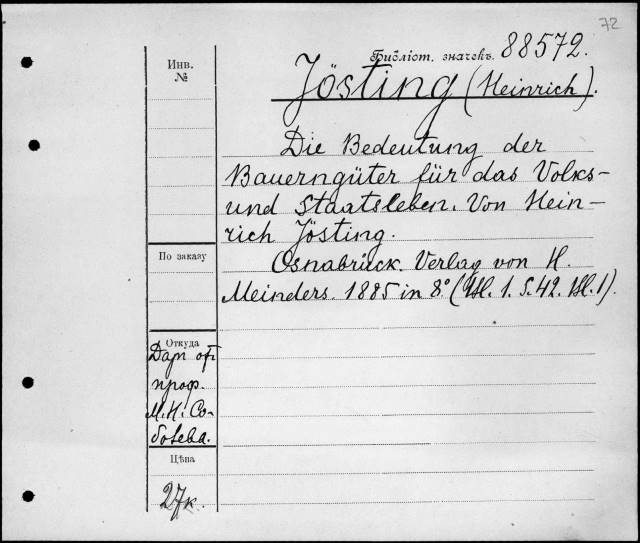 72
Библіот. значекъ. 88572.
Jösting (Heinrich).
Die Bedeutung der
Bauerngüter für das Volks-
und Staatsleben. Von Hein-
rich Jösting.
Osnabrück. Verlag von H.
Meinders. 1885 in 8.° ( 1. S. 42. 1).
Инв.
№
По заказу
Откуда
Даръ отъ
проф.
М.Н. Со-
болева.
Цѣна
27к.